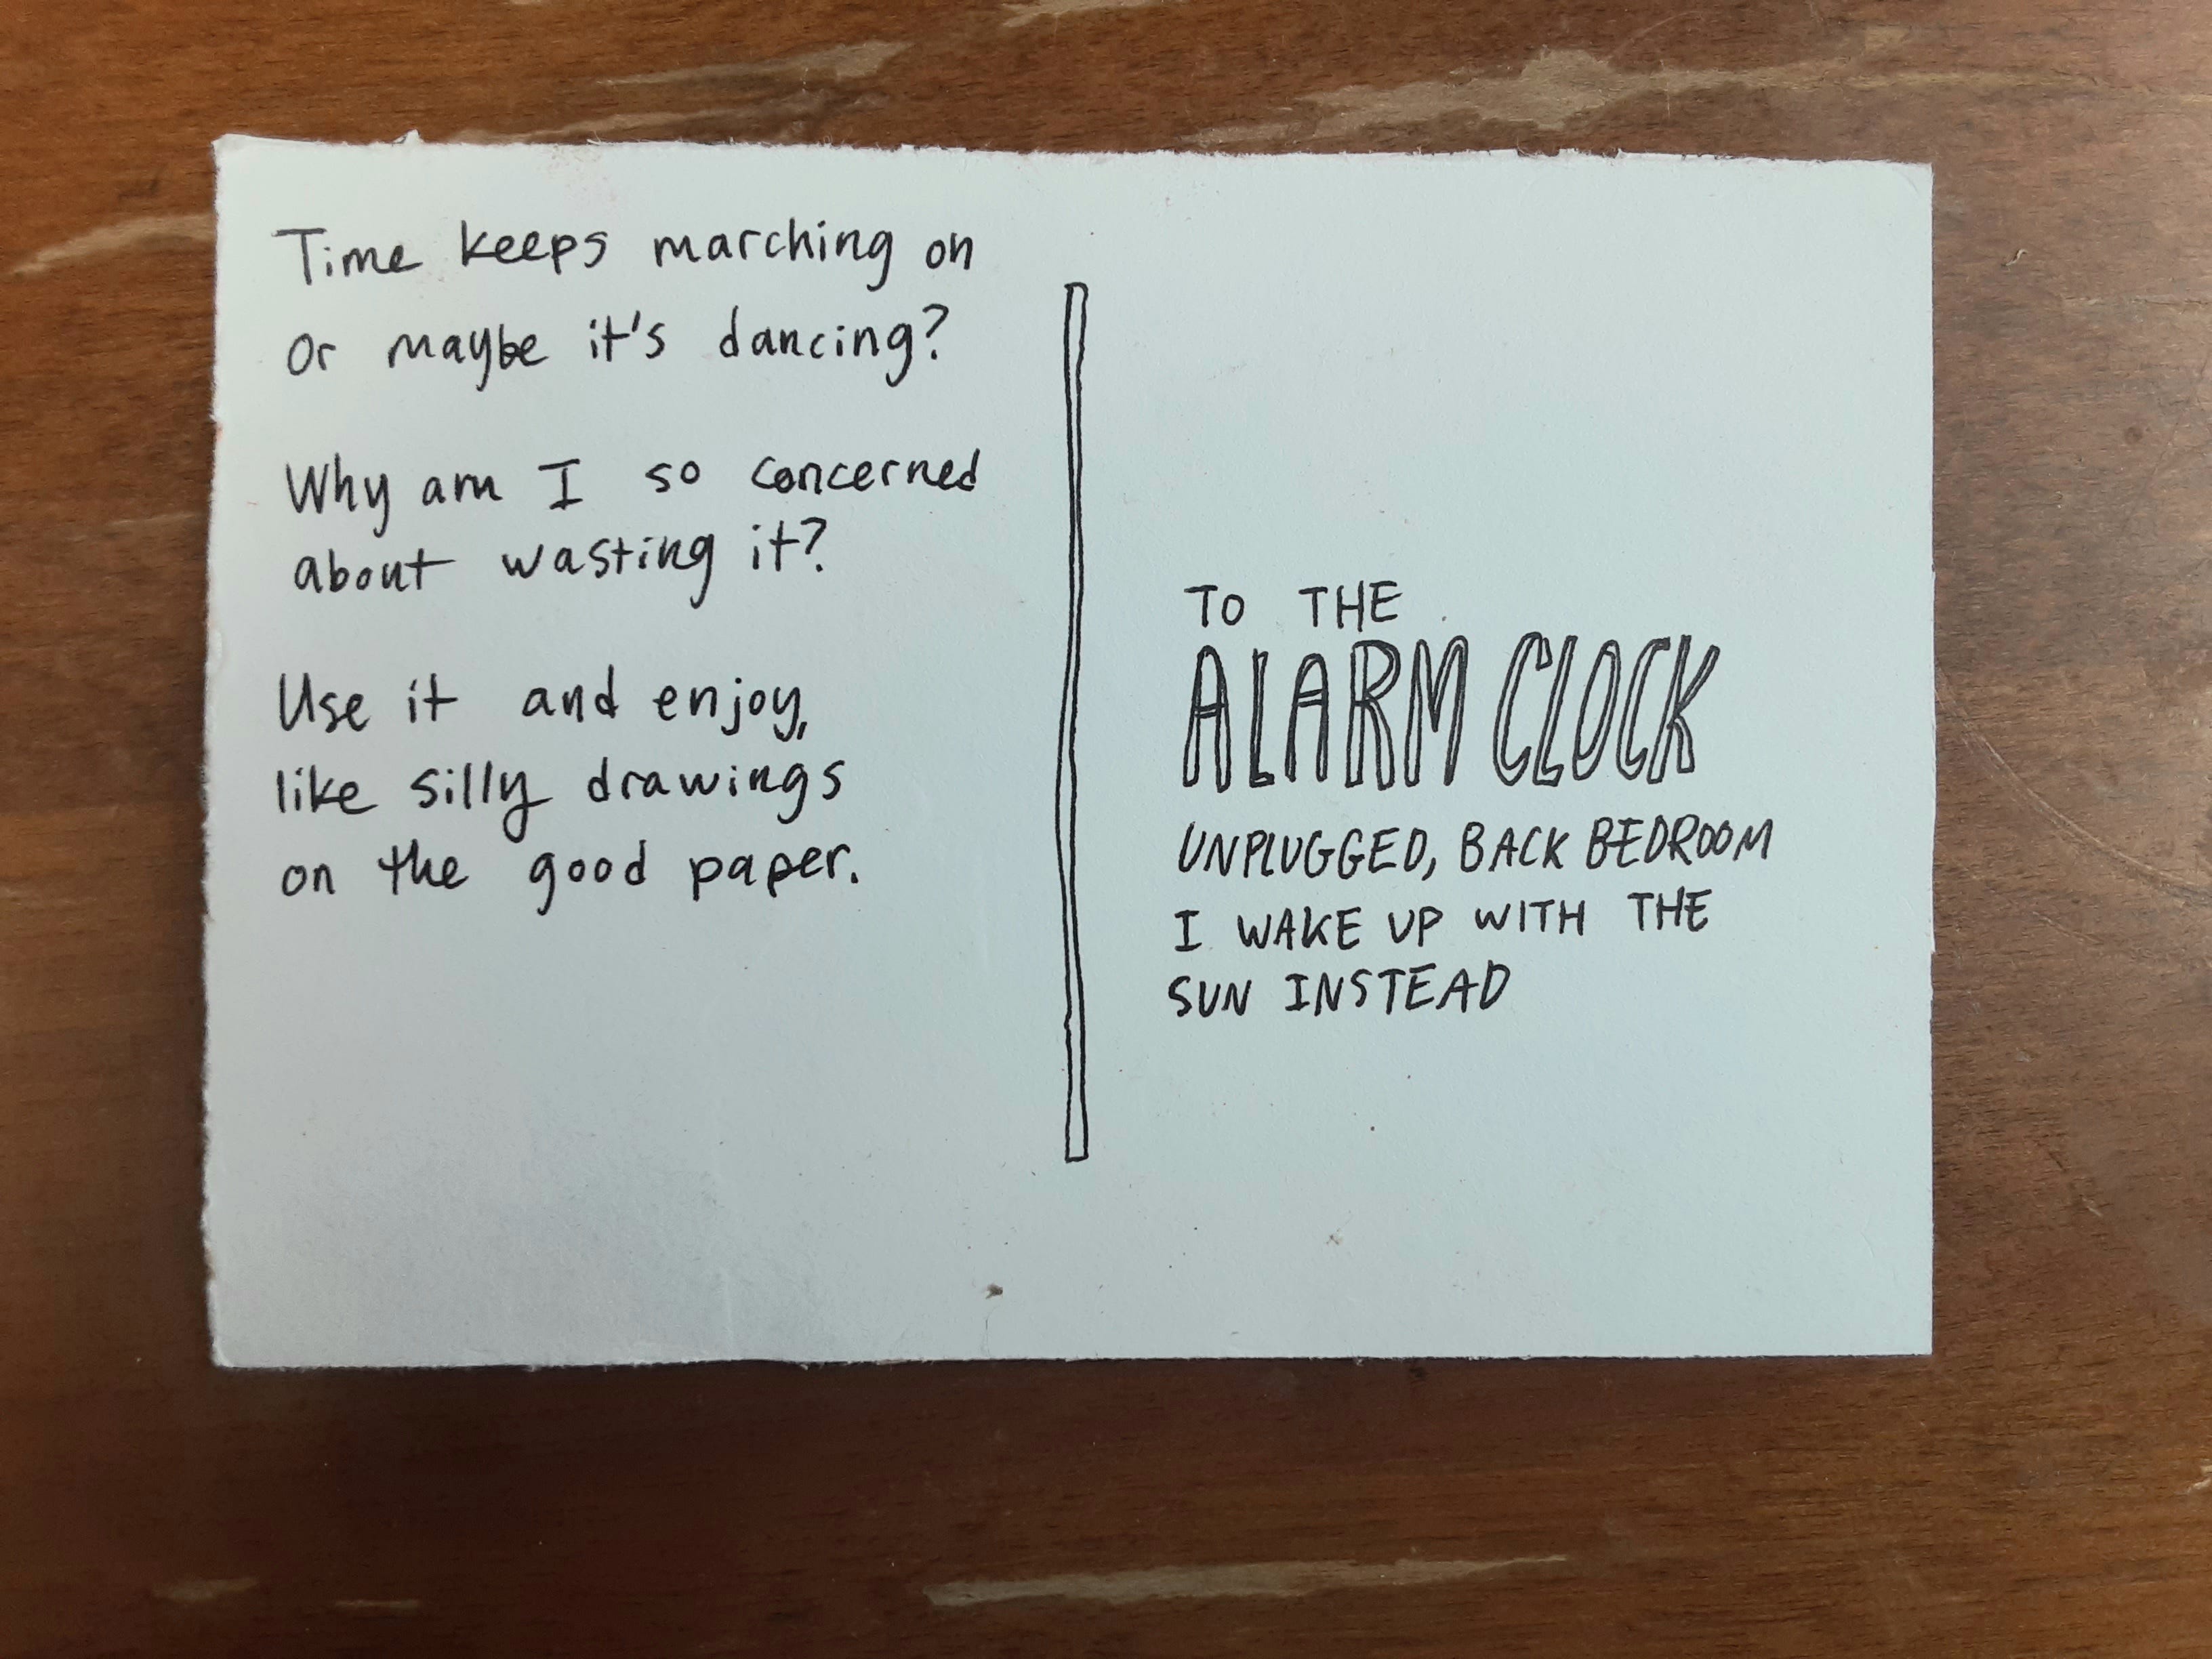 Time keeps marching on
or maybe it's dancing?
Why am I so concerned
about wasting it?
Use it and enjoy,
like silly drawings
on the good paper.
TO THE
ALARM CLOCK
UNPLUGGED, BACK BEDROOM
I WAKE UP WITH THE
SUN INSTEAD